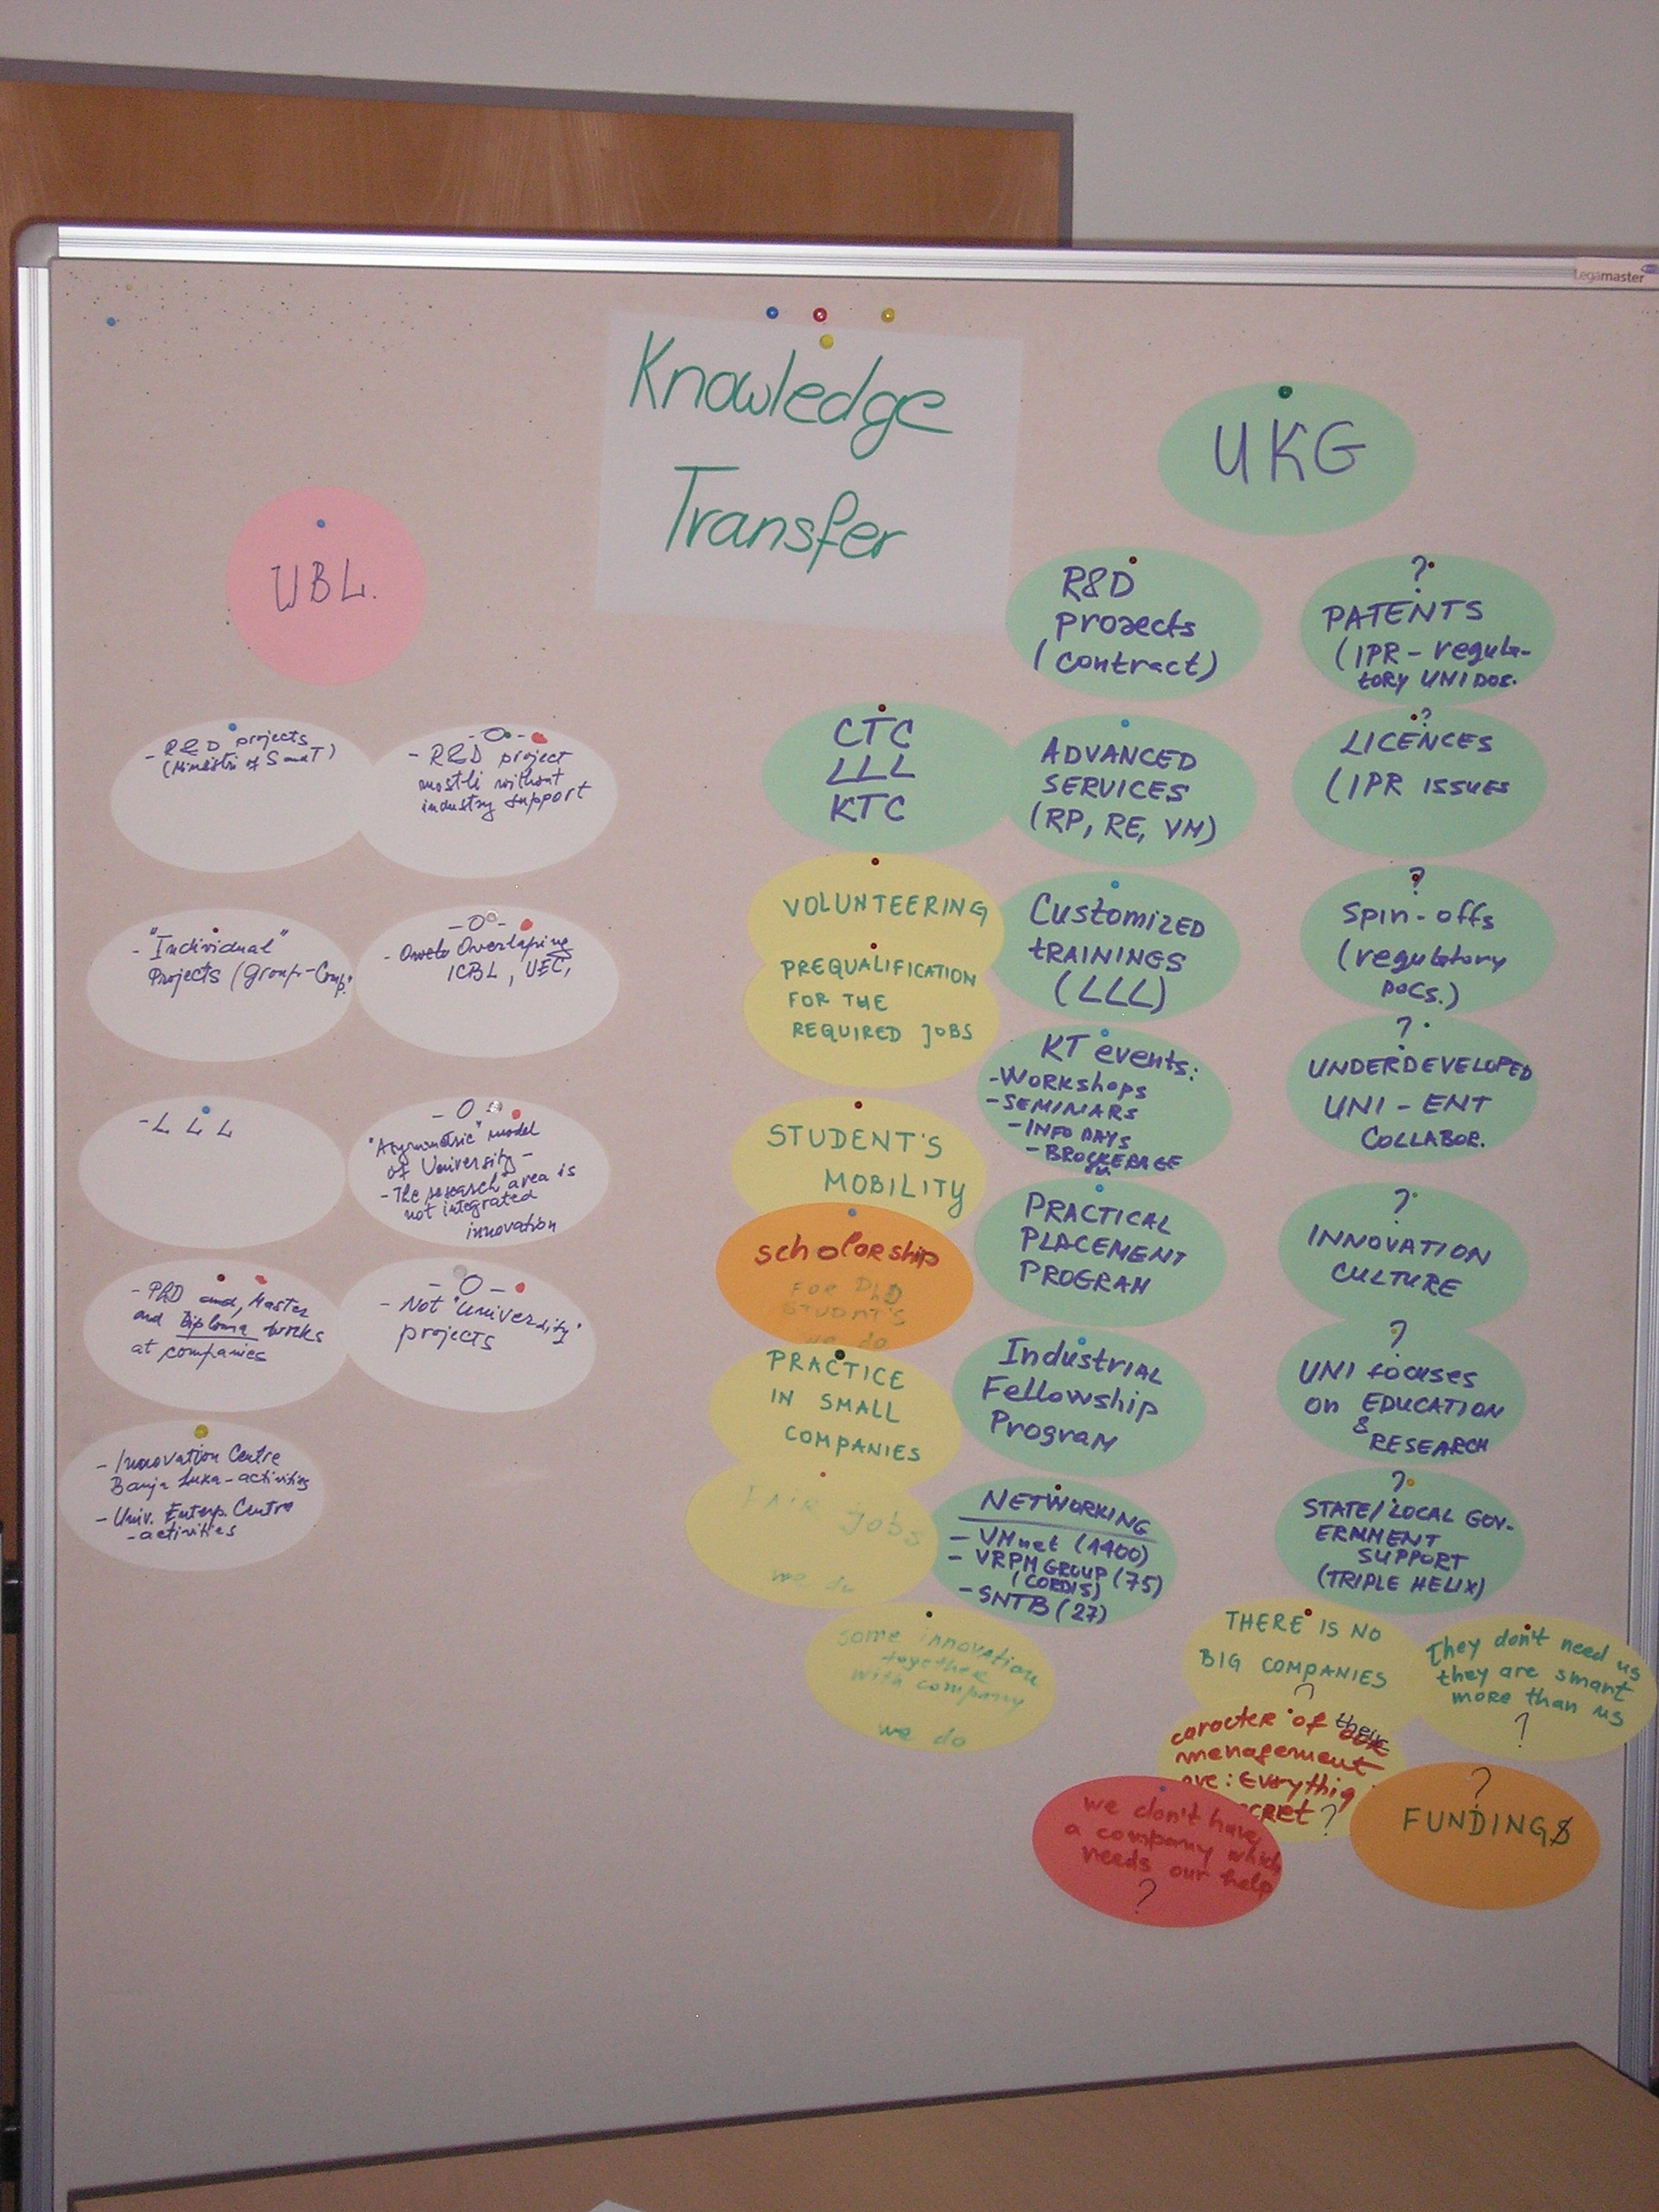 Legamaster
Knowledge
Transfer
UBL.
- R&D projects
(Ministri of S and T)
- O -
- R&D project
mostli without
industry support
- "Individual"
Projects (Group-Comp.
- O -
Overlaping
ICBL, UEC,
- L L L
- O
"Asymmetric" model
of University -
- The research area is
not integrated
innovation
- PhD and, Master
and Diploma works
at companies
- O -
- Not "University"
projects
- Innovation Centre
Banja Luka - activities
- Univ. Enterp. Centre
- activities
UKG
CTC
LLL
KTC
VOLUNTEERING
PREQUALIFICATION
FOR THE
REQUIRED JOBS
STUDENT'S
MOBILITY
scholorship
FOR PhD
STUDNT'S
we do
PRACTICE
IN SMALL
COMPANIES
FAIR jobs
we do
some innovation
together
with company
we do
R&D
projects
(contract)
ADVANCED
SERVICES
(RP, RE, VM)
Customized
tRAININGS
(LLL)
KT events:
- Workshops
- SEMINARS
- INFO DAYS
- BROCKERAGE
PRACTICAL
PLACEMENT
PROGRAM
Industrial
Fellowship
Program
NETWORKING
- VMnet (1400)
- VRPM GROUP (75)
(CORDIS)
- SNTB (27)
?
PATENTS
(IPR - regula-
tory UNI DOC.
?
LICENCES
(IPR ISSUES
?
Spin-offs
(regulatory
DOCS.)
?
UNDERDEVELOPED
UNI - ENT
COLLABOR.
?
INNOVATION
CULTURE
?
UNI focuses
on EDUCATION
&
RESEARCH
?
STATE/LOCAL GOV-
ERNMENT
SUPPORT
(TRIPLE HELIX)
THERE IS NO
BIG COMPANIES
?
They don't need us
they are smart
more than us
?
caracter of their
menagement
are: Evrything
?
we don't have
a company which
needs our help
?
?
FUNDINGS